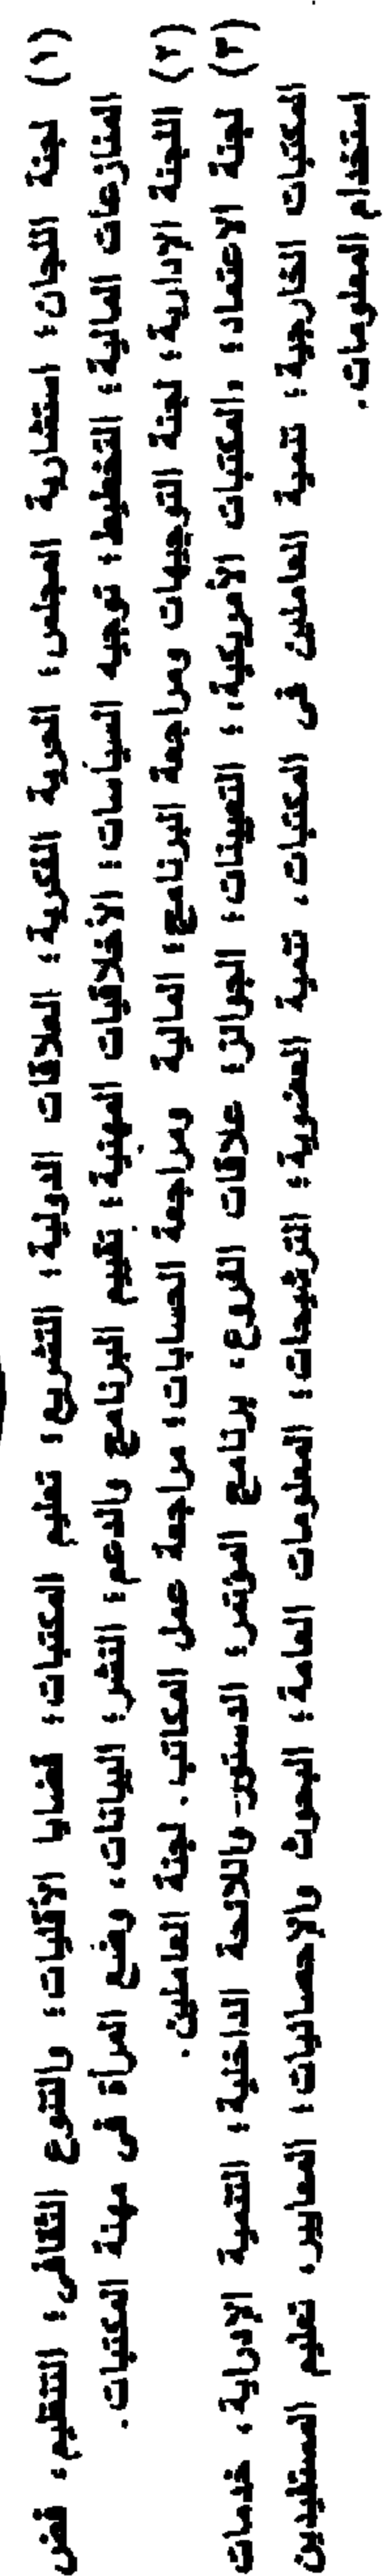 (١) لجنة اللجان؛ استشارية المجلس؛ الحرية الفكرية؛ العلاقات الدولية؛ التشريع؛ تعليم المكتبات؛ قضايا الأقليات؛ والتنوع الثقافى؛ التنظيم، فض
المنازعات المالية؛ التخطيط؛ توجيه السياسات؛ الأخلاقيات المهنية؛ تقييم البرنامج والدعم؛ النشر؛ البيانات، وضع المرأة فى مهنة المكتبات.
(٢) اللجنة الإدارية؛ لجنة التوجيهات ومراجعة البرنامج؛ المالية ومراجعة الحسابات؛ مراجعة عمل المكاتب. لجنة العاملين.
(٣) لجنة الاعتماد؛ والمكتبات الأمريكية؛ التعيينات؛ الجوائز؛ علاقات الفروع، برنامج المؤتمر؛ الدستور واللائحة الداخلية؛ التنمية الإدراية، خدمات
المكتبات الخارجية؛ تنمية العاملين فى المكتبات، تنمية العضوية؛ الترشيحات؛ المعلومات العامة؛ البحوث والإحصائيات؛ المعايير، تعليم المستفيدين
استخدام المعلومات.